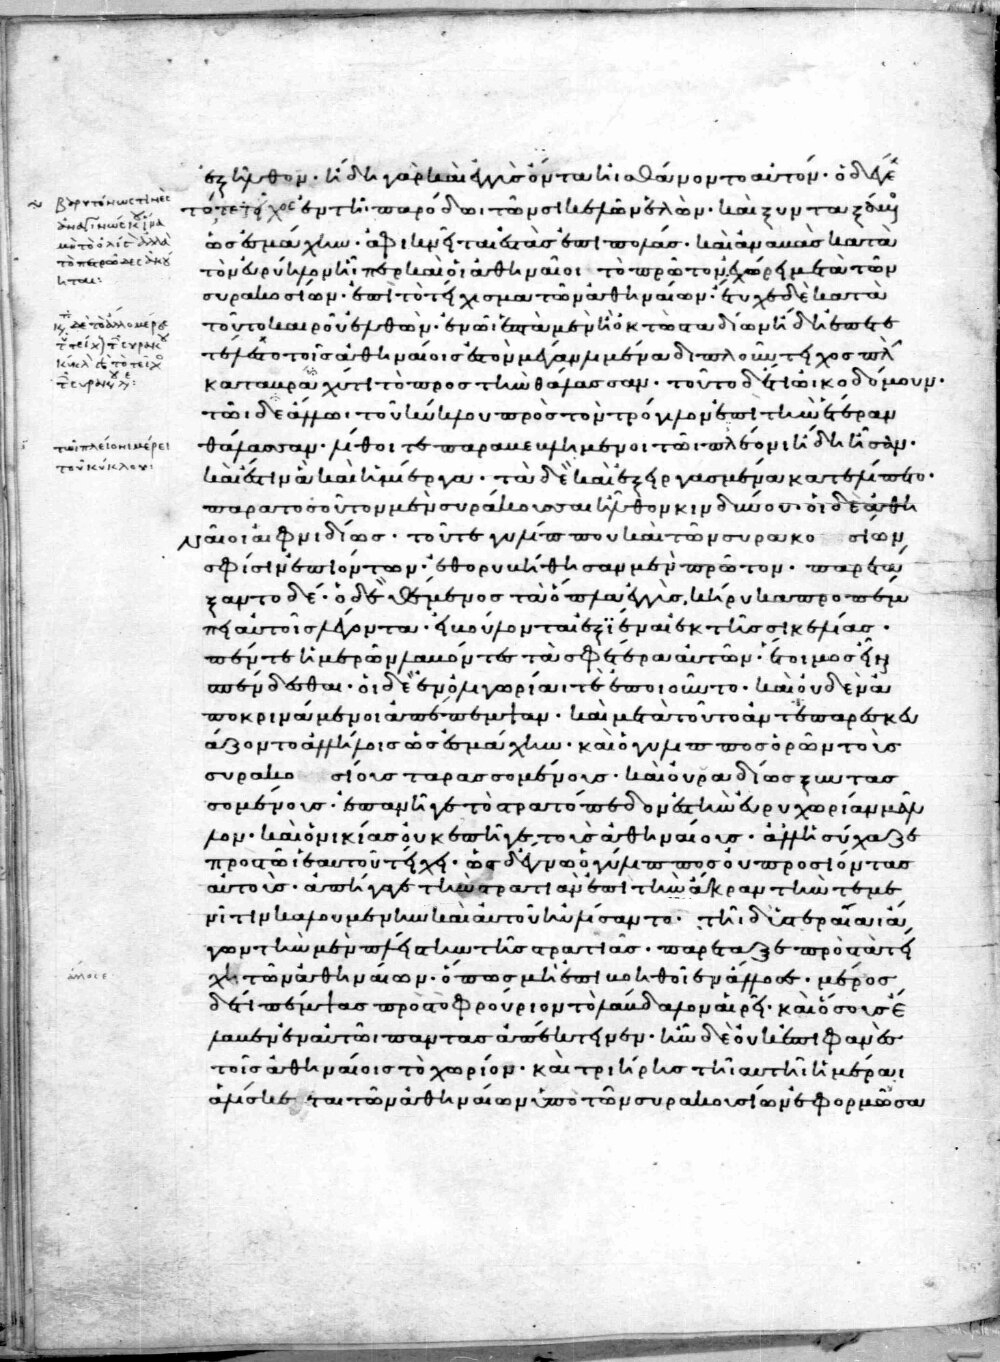 ἐξῆλθον· ἤδη γὰρ καὶ ἐγγὺς ὄντα ἠισθάνοντο αὐτόν· ὁ δὲ γε
τότε τεῖχος ἐν τῆι παρόδωι τῶν σικελῶν ἑλών· καὶ ξυνταξάμενος
ὡς ἐς μάχην· ἀφικνεῖται ἐς τὰς ἐπιπολάς· καὶ ἀναβὰς κατὰ
τὸν εὐρύηλον ἧιπερ καὶ οἱ ἀθηναῖοι τὸ πρῶτον ἐχώρει μετὰ τῶν
συρακοσίων· ἐπὶ τὸ τείχισμα τῶν ἀθηναίων· ἔτυχε δὲ κατὰ
τοῦτο καιροῦ ἐλθών· ἐν ὧι ἑπτὰ μὲν ἢ ὀκτὼ σταδίων ἤδη ἐπετε
τέλεστο τοῖς ἀθηναίοις ἐς τὸν μέγαν λιμένα διπλοῦν τεῖχος πλὴν
κατὰ βραχύ τι τὸ πρὸς τὴν θάλασσαν· τοῦτο δ' ἔτι ὠικοδόμουν·
τῶι δὲ ἄλλωι τοῦ κύκλου πρὸς τὸν τρόγιλον ἐπὶ τὴν ἑτέραν
θάλασσαν· λίθοι τε παραβεβλημένοι τῶι πλέονι ἤδη ἦσαν·
καὶ ἔστιν ἃ καὶ ἡμίεργα· τὰ δὲ καὶ ἐξειργασμένα κατελέλειπτο·
παρὰ τοσοῦτον μὲν συράκουσαι ἦλθον κινδύνου· οἱ δὲ ἀθη
ναῖοι αἰφνιδίως· τοῦ τε γυλίππου καὶ τῶν συρακοσίων
σφίσιν ἐπιόντων· ἐθορυβήθησαν μὲν πρῶτον· παρετά
ξαντο δέ· ὁ δὲ θέμενος τὰ ὅπλα ἐγγὺς, κήρυκα προπέμ
πει αὐτοῖς λέγοντα· εἰ βούλονται ἐξϊέναι ἐκ τῆς σικελίας·
πέντε ἡμερῶν λαβόντες τὰ σφέτερα αὐτῶν· ἑτοῖμος εἶναι
σπένδεσθαι· οἱ δὲ ἐν ὀλιγωρίαι τε ἐποιοῦντο· καὶ οὐδὲν ἀ
ποκρινάμενοι ἀπέπεμψαν· καὶ μετὰ τοῦτο ἀντιπαρεσκευ
άζοντο ἀλλήλοις ὡς ἐς μάχην· καὶ ὁ γύλιππος ὁρῶν τοὺς
συρακοσίους ταρασσομένους· καὶ οὐ ῥαδίως ξυντασ
σομένους· ἐπανῆγε τὸ στρατόπεδον ἐς τὴν εὐρυχωρίαν μᾶλ
λον· καὶ ὁ νικίας οὐκ ἐπῆγε τοὺς ἀθηναίους· ἀλλ' ἡσύχαζε
πρὸς τῶι ἑαυτοῦ τείχει· ὡς δ' ἔγνω ὁ γύλιππος οὐ προσιόντας
αὐτούς· ἀπήγαγε τὴν στρατιὰν ἐπὶ τὴν ἄκραν τὴν τεμε
νῖτιν καλουμένην καὶ αὐτοῦ ηὐλίσαντο· τῆι δ' ὑστεραίαι ἀ
γων τὴν μὲν πλείστην τῆς στρατιᾶς· παρέταξε πρὸς τὰ τεί
χη τῶν ἀθηναίων· ὅπως μὴ ἐπιβοηθοῖεν ἄλλοσε· μέρος
δέ τι πέμψας πρὸς τὸ φρούριον τὸ λάβδαλον αἱρεῖ· καὶ ὅσους ἔ
λαβεν ἐν αὐτῶι πάντας ἀπέκτεινεν· ἦν δὲ οὐκ ἐπιφανὲς
τοῖς ἀθηναίοις τὸ χωρίον· καὶ τριήρης τῆι αὐτῆι ἡμέραι
ἁλίσκεται τῶν ἀθηναίων ὑπὸ τῶν συρακουσίων ἐφορμοῦσα
τῶι πλείονι μέρει
τοῦ κύκλου:
ἄλλοσε